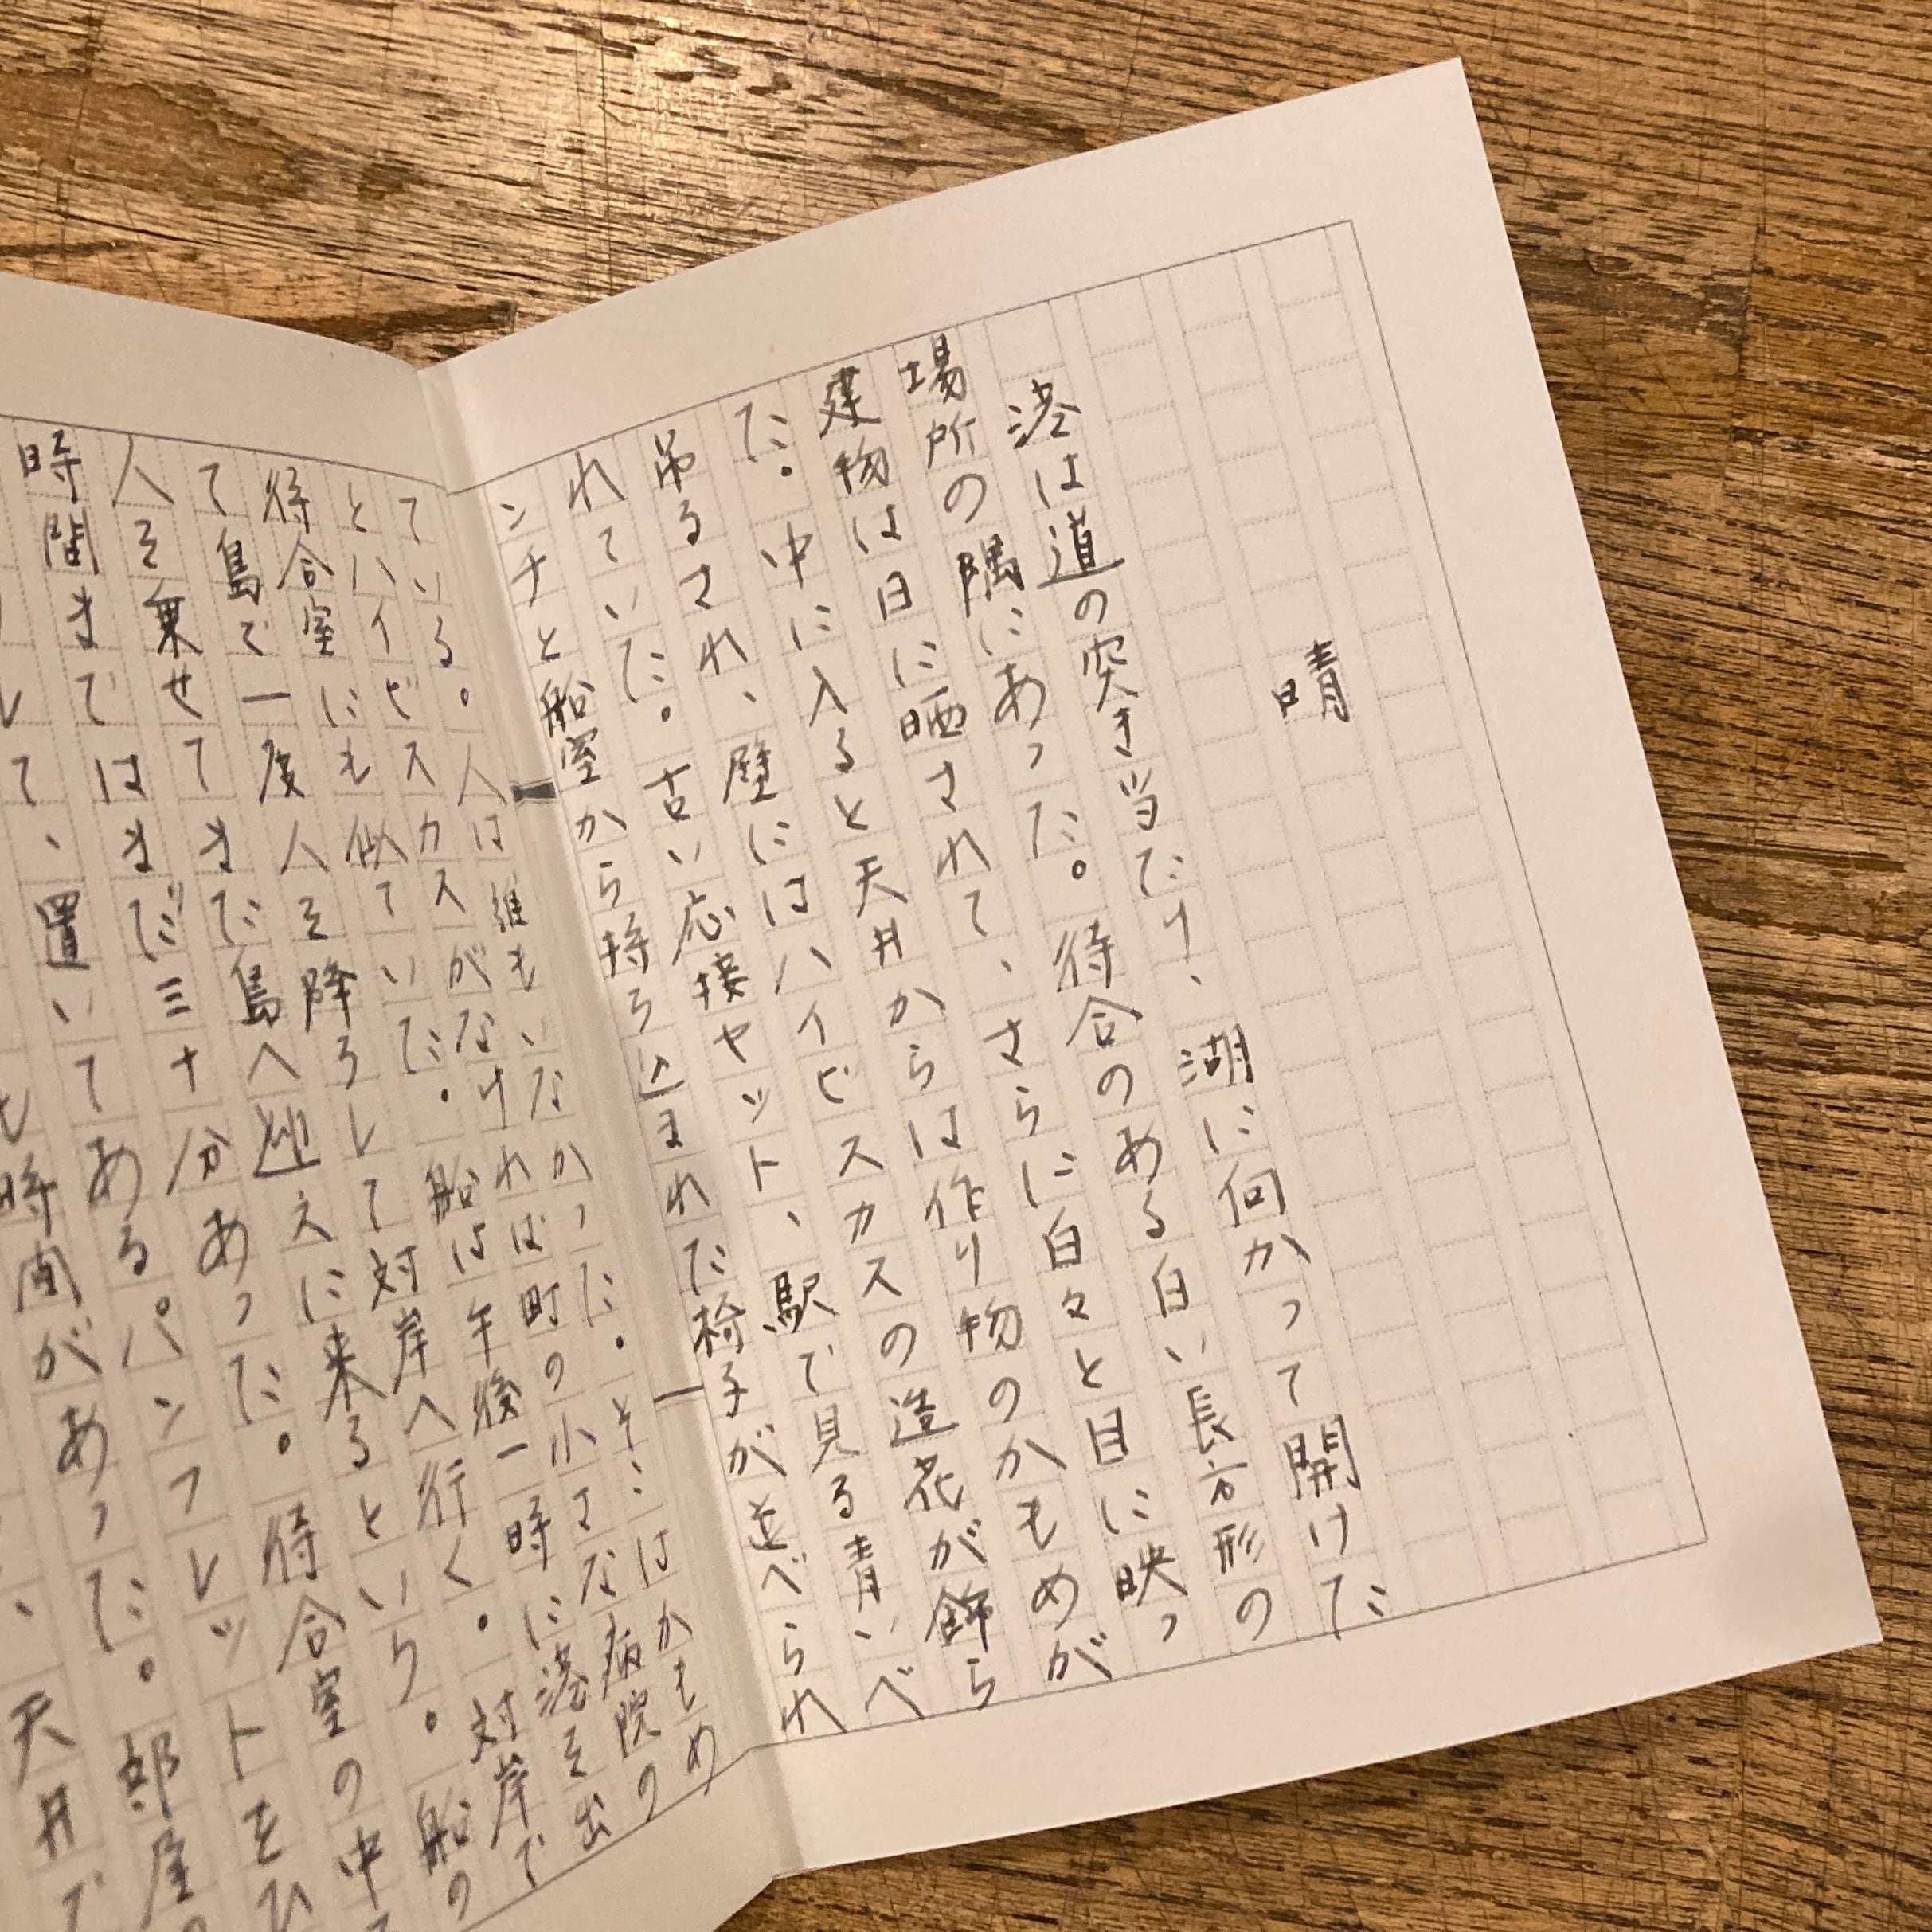 晴
港は道の突き当たり、湖に向かって開けた
場所の隅にあった。待合のある白い長方形の
建物は日に晒されて、さらに白々と目に映っ
た。中に入ると天井からは作り物のかもめが
吊るされ、壁にはハイビスカスの造花が飾ら
れていた。古い応接セット、駅で見る青いベ
ンチと船室から持ち込まれた椅子が並べられ
ている。人は誰もいなかった。そこはかもめ
とハイビスカスがなければ町の小さな病院の
待合室にも似ていた。船は午後一時に港を出
て島で一度人を降ろして対岸へ行く。対岸で
人を乗せてまた島へ迎えに来るという。船の
時間まではまだ三十分あった。待合室の中
して、置いてあるパンフレットをひ
も時間があった。部屋の
、天井で